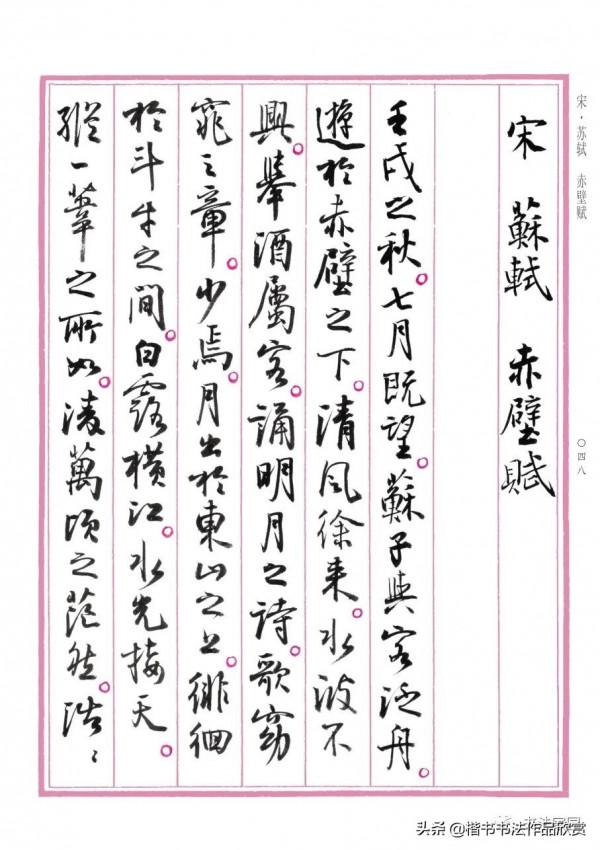 宋·苏轼 赤壁赋
〇四八
宋 蘇軾 赤壁賦
壬戌之秋。七月既望。蘇子與客泛舟。
遊於赤壁之下。清風徐来。水波不
興。舉酒屬客。誦明月之詩。歌窈
窕之章。少焉。月出於東山之上。徘徊
於斗牛之間。白露橫江。水光接天。
縱一葦之所如。凌萬頃之茫然。浩〻
头条 @楷书书法作品欣赏